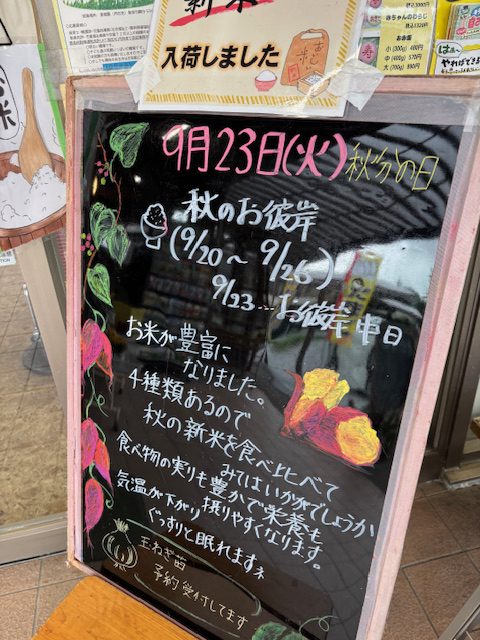 新米
入荷しました
お食い初め
小(300g) 400円
中(400g) 570円
大(700g) 880円
やればできる
お米
9月23日(火)秋分の日
秋のお彼岸
(9/20～9/26)
9/23…お彼岸中日
お米が豊富に
なりました。
4種類あるので
秋の新米を食べ比べて
みてはいかがでしょうか
食べ物の実りも豊かで栄養も
摂りやすくなります。
気温が下がり
ぐっすりと眠れますネ
玉ねぎ苗
予約受付してます